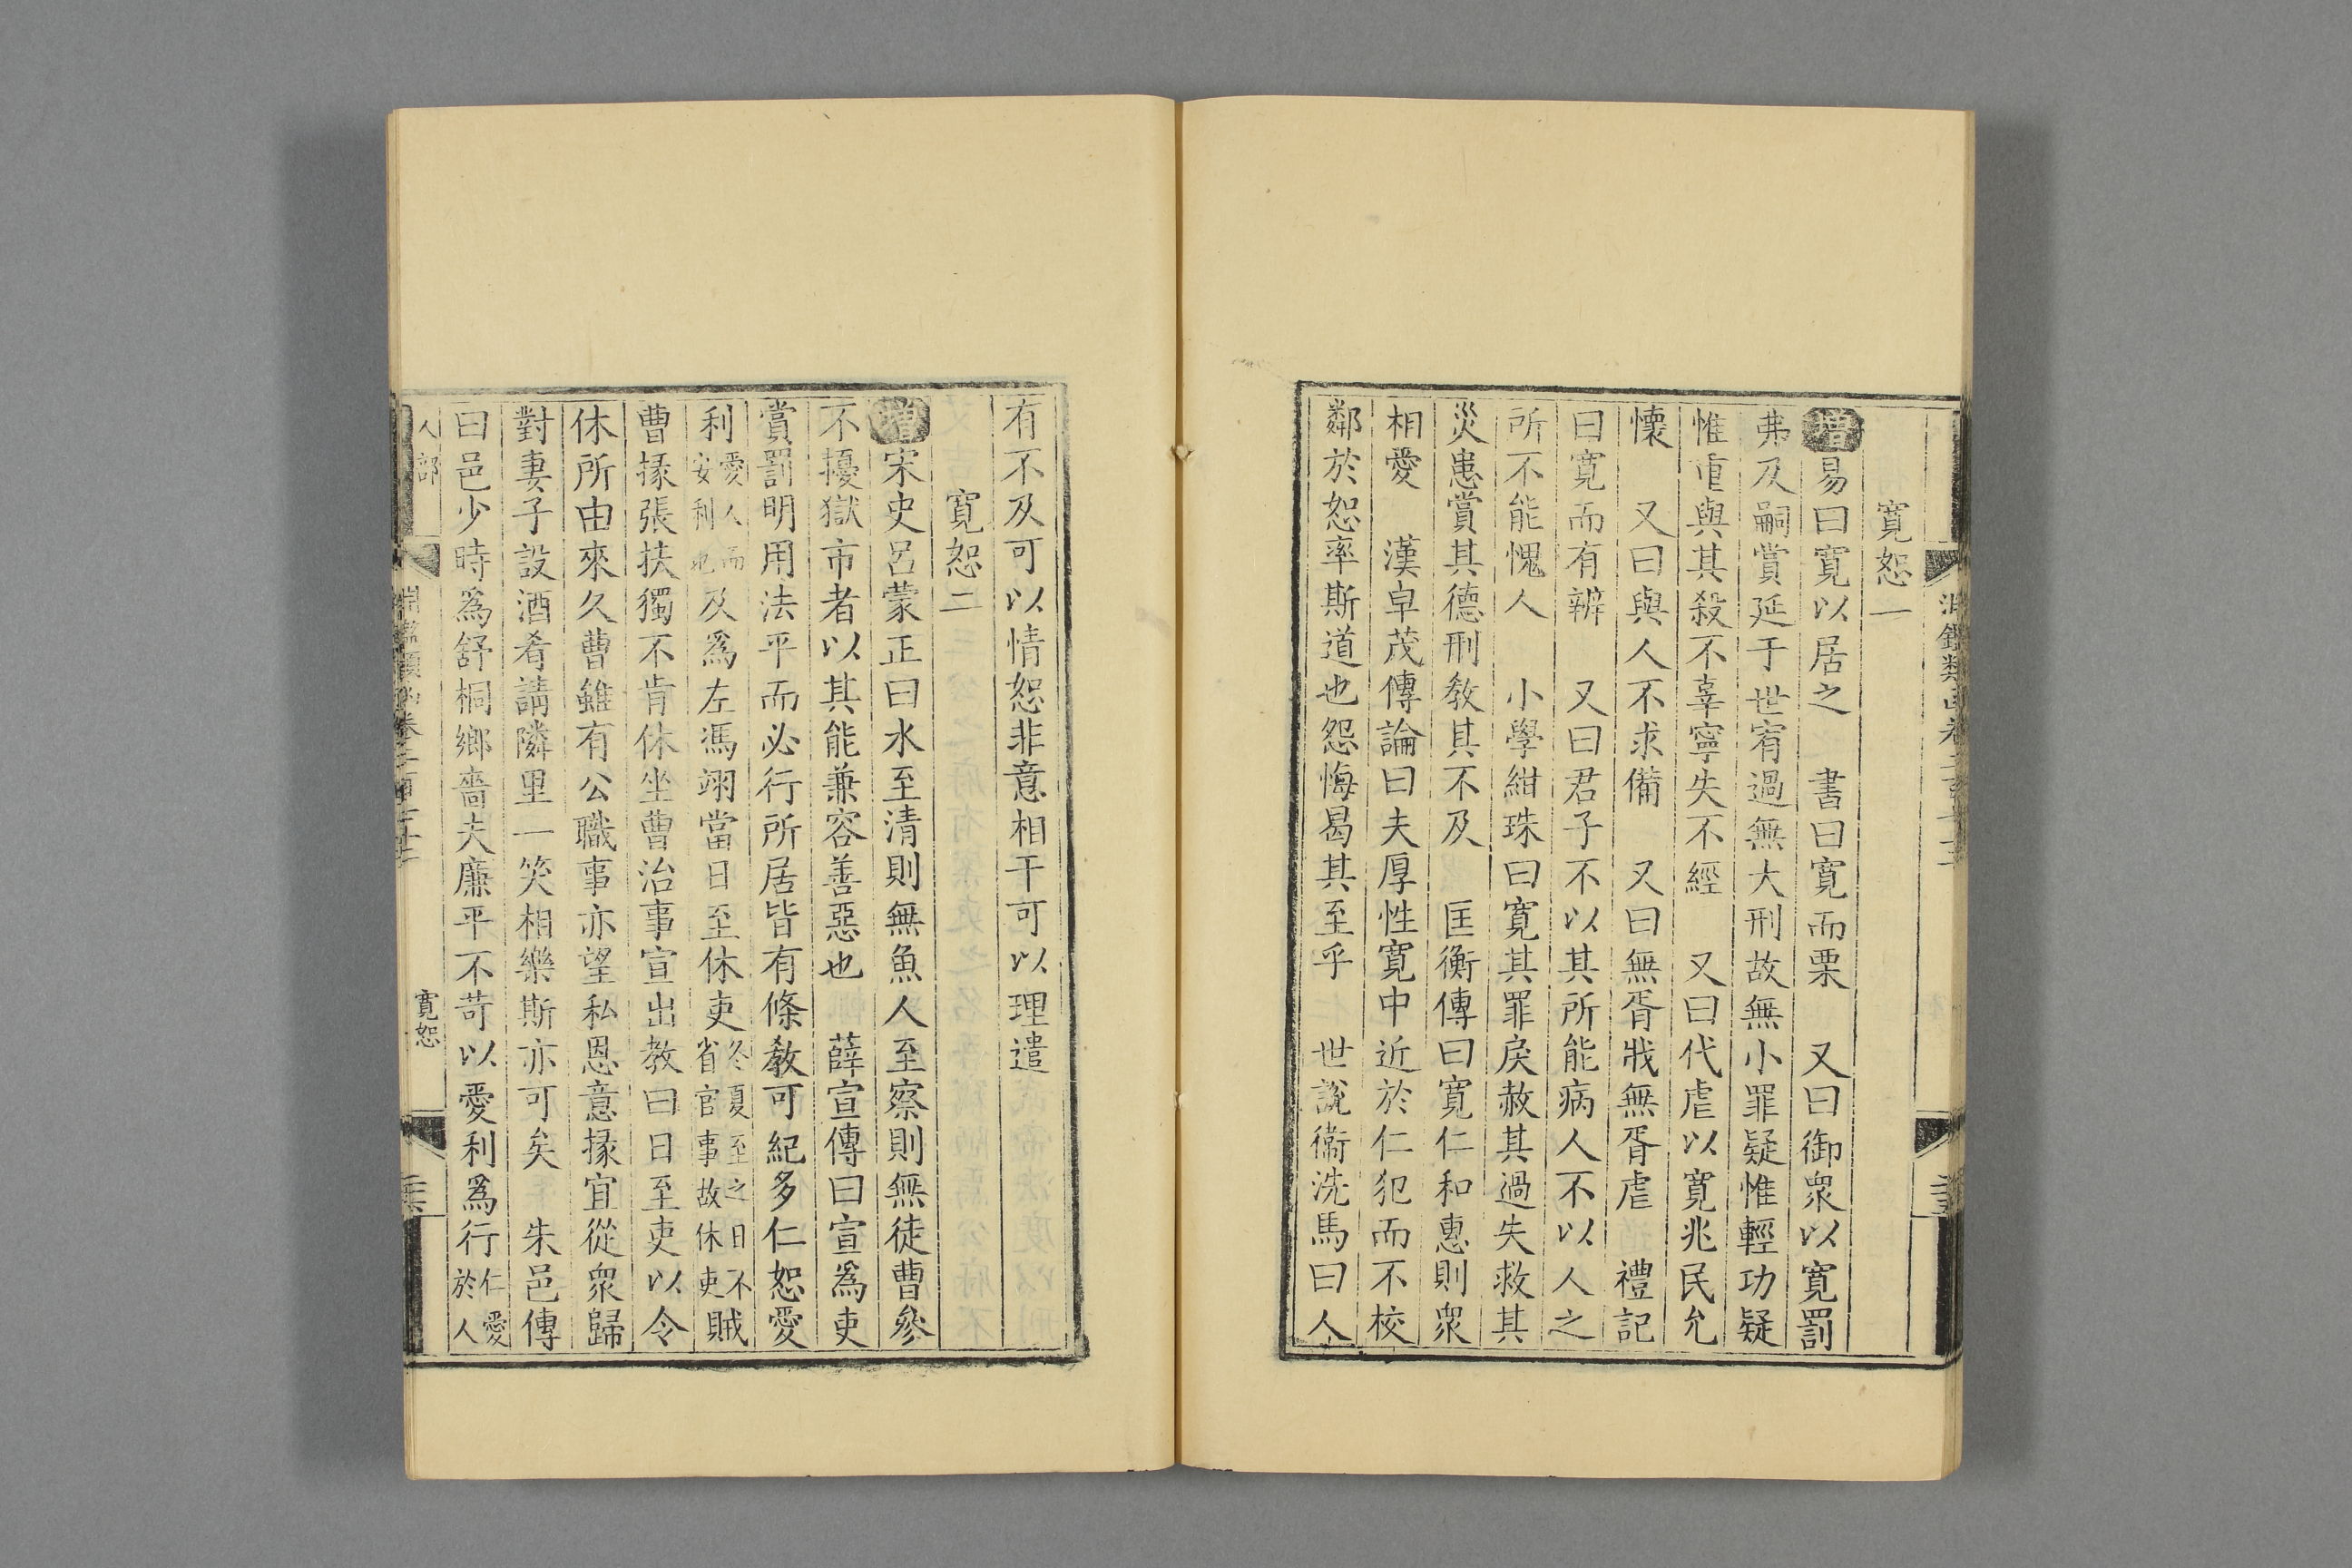 寬恕一
增易曰寬以居之　書曰寬而栗　又曰御衆以寬罰
弗及嗣賞延于世宥過無大刑故無小罪疑惟輕功疑
惟重與其殺不辜寧失不經　又曰代虐以寬兆民允
懷　又曰與人不求備　又曰無胥戕無胥虐　禮記
曰寬而有辨　又曰君子不以其所能病人不以人之
所不能愧人　小學紺珠曰寬其罪戾赦其過失救其
災患賞其德刑教其不及　匡衡傳曰寬仁和惠則衆
相愛　漢卓茂傳論曰夫厚性寬中近於仁犯而不校
鄰於恕率斯道也怨悔曷其至乎　世說衞洗馬曰人
有不及可以情恕非意相干可以理遣
寬恕二
增宋史呂蒙正曰水至清則無魚人至察則無徒曹參
不擾獄市者以其能兼容善惡也　薛宣傳曰宣爲吏
賞罰明用法平而必行所居皆有條教可紀多仁恕愛
利愛人而安利也及爲左馮翊當日至休吏冬夏至之日不省官事故休吏賊
曹掾張扶獨不肯休坐曹治事宣出教曰日至吏以令
休所由來久曹雖有公職事亦望私恩意掾宜從衆歸
對妻子設酒肴請隣里一笑相樂斯亦可矣　朱邑傳
曰邑少時爲舒桐鄉嗇夫廉平不苛以愛利爲行仁愛於人
人部
寬恕